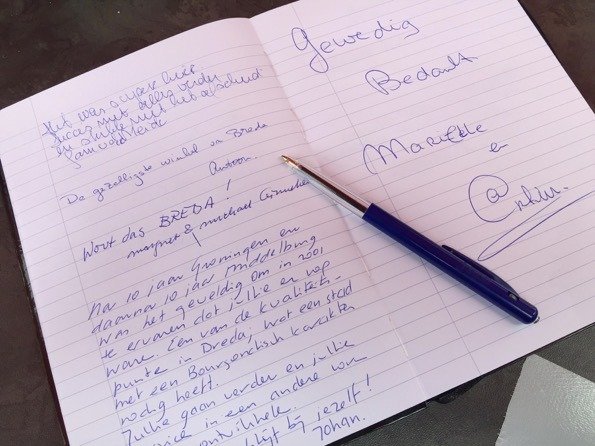 Het was super hier.
succes met alles verder
en sterkte met het afscheid
De gezelligste winkel van Breda
Antoon.
Wout das BREDA!
margret & michael
Na 10 jaar Groningen en
daarna 10 jaar Middelburg
was het geweldig om in 2001
te ervaren dat jullie er nog
ware. Een van de kwaliteits-
punte in Breda, wat een stad
met een Bourgondisch karakter
nodig heeft.
Jullie gaan verder en jullie
in een andere vorm
ontwikkele.
blijf bij jezelf!
Johan.
Gewedig
Bedankt
Marielle
en